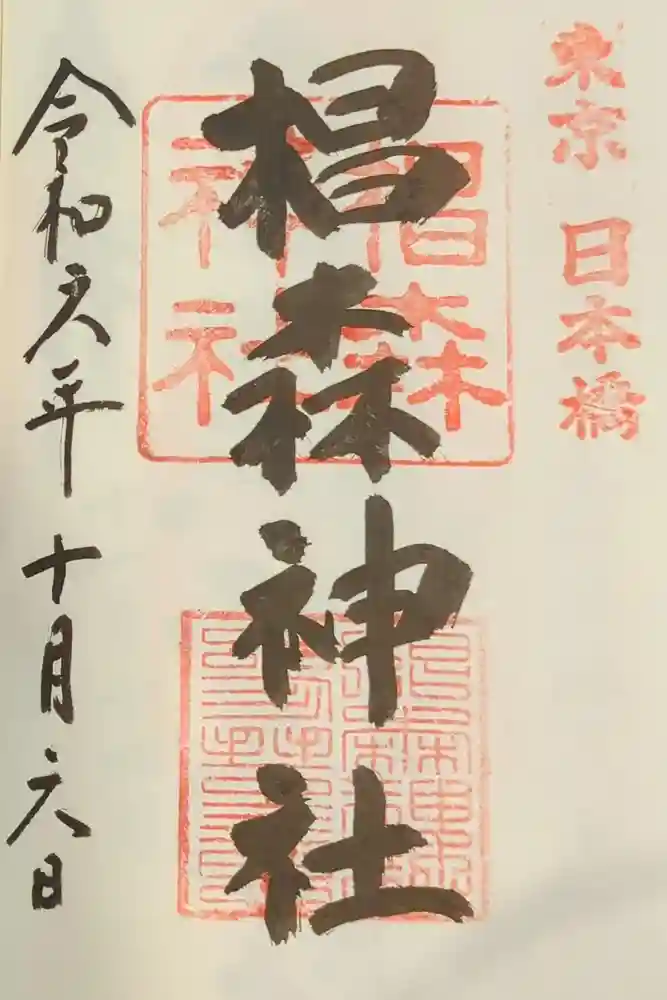 東京 日本橋
椙森神社
椙森
神社
令和六年 十月六日